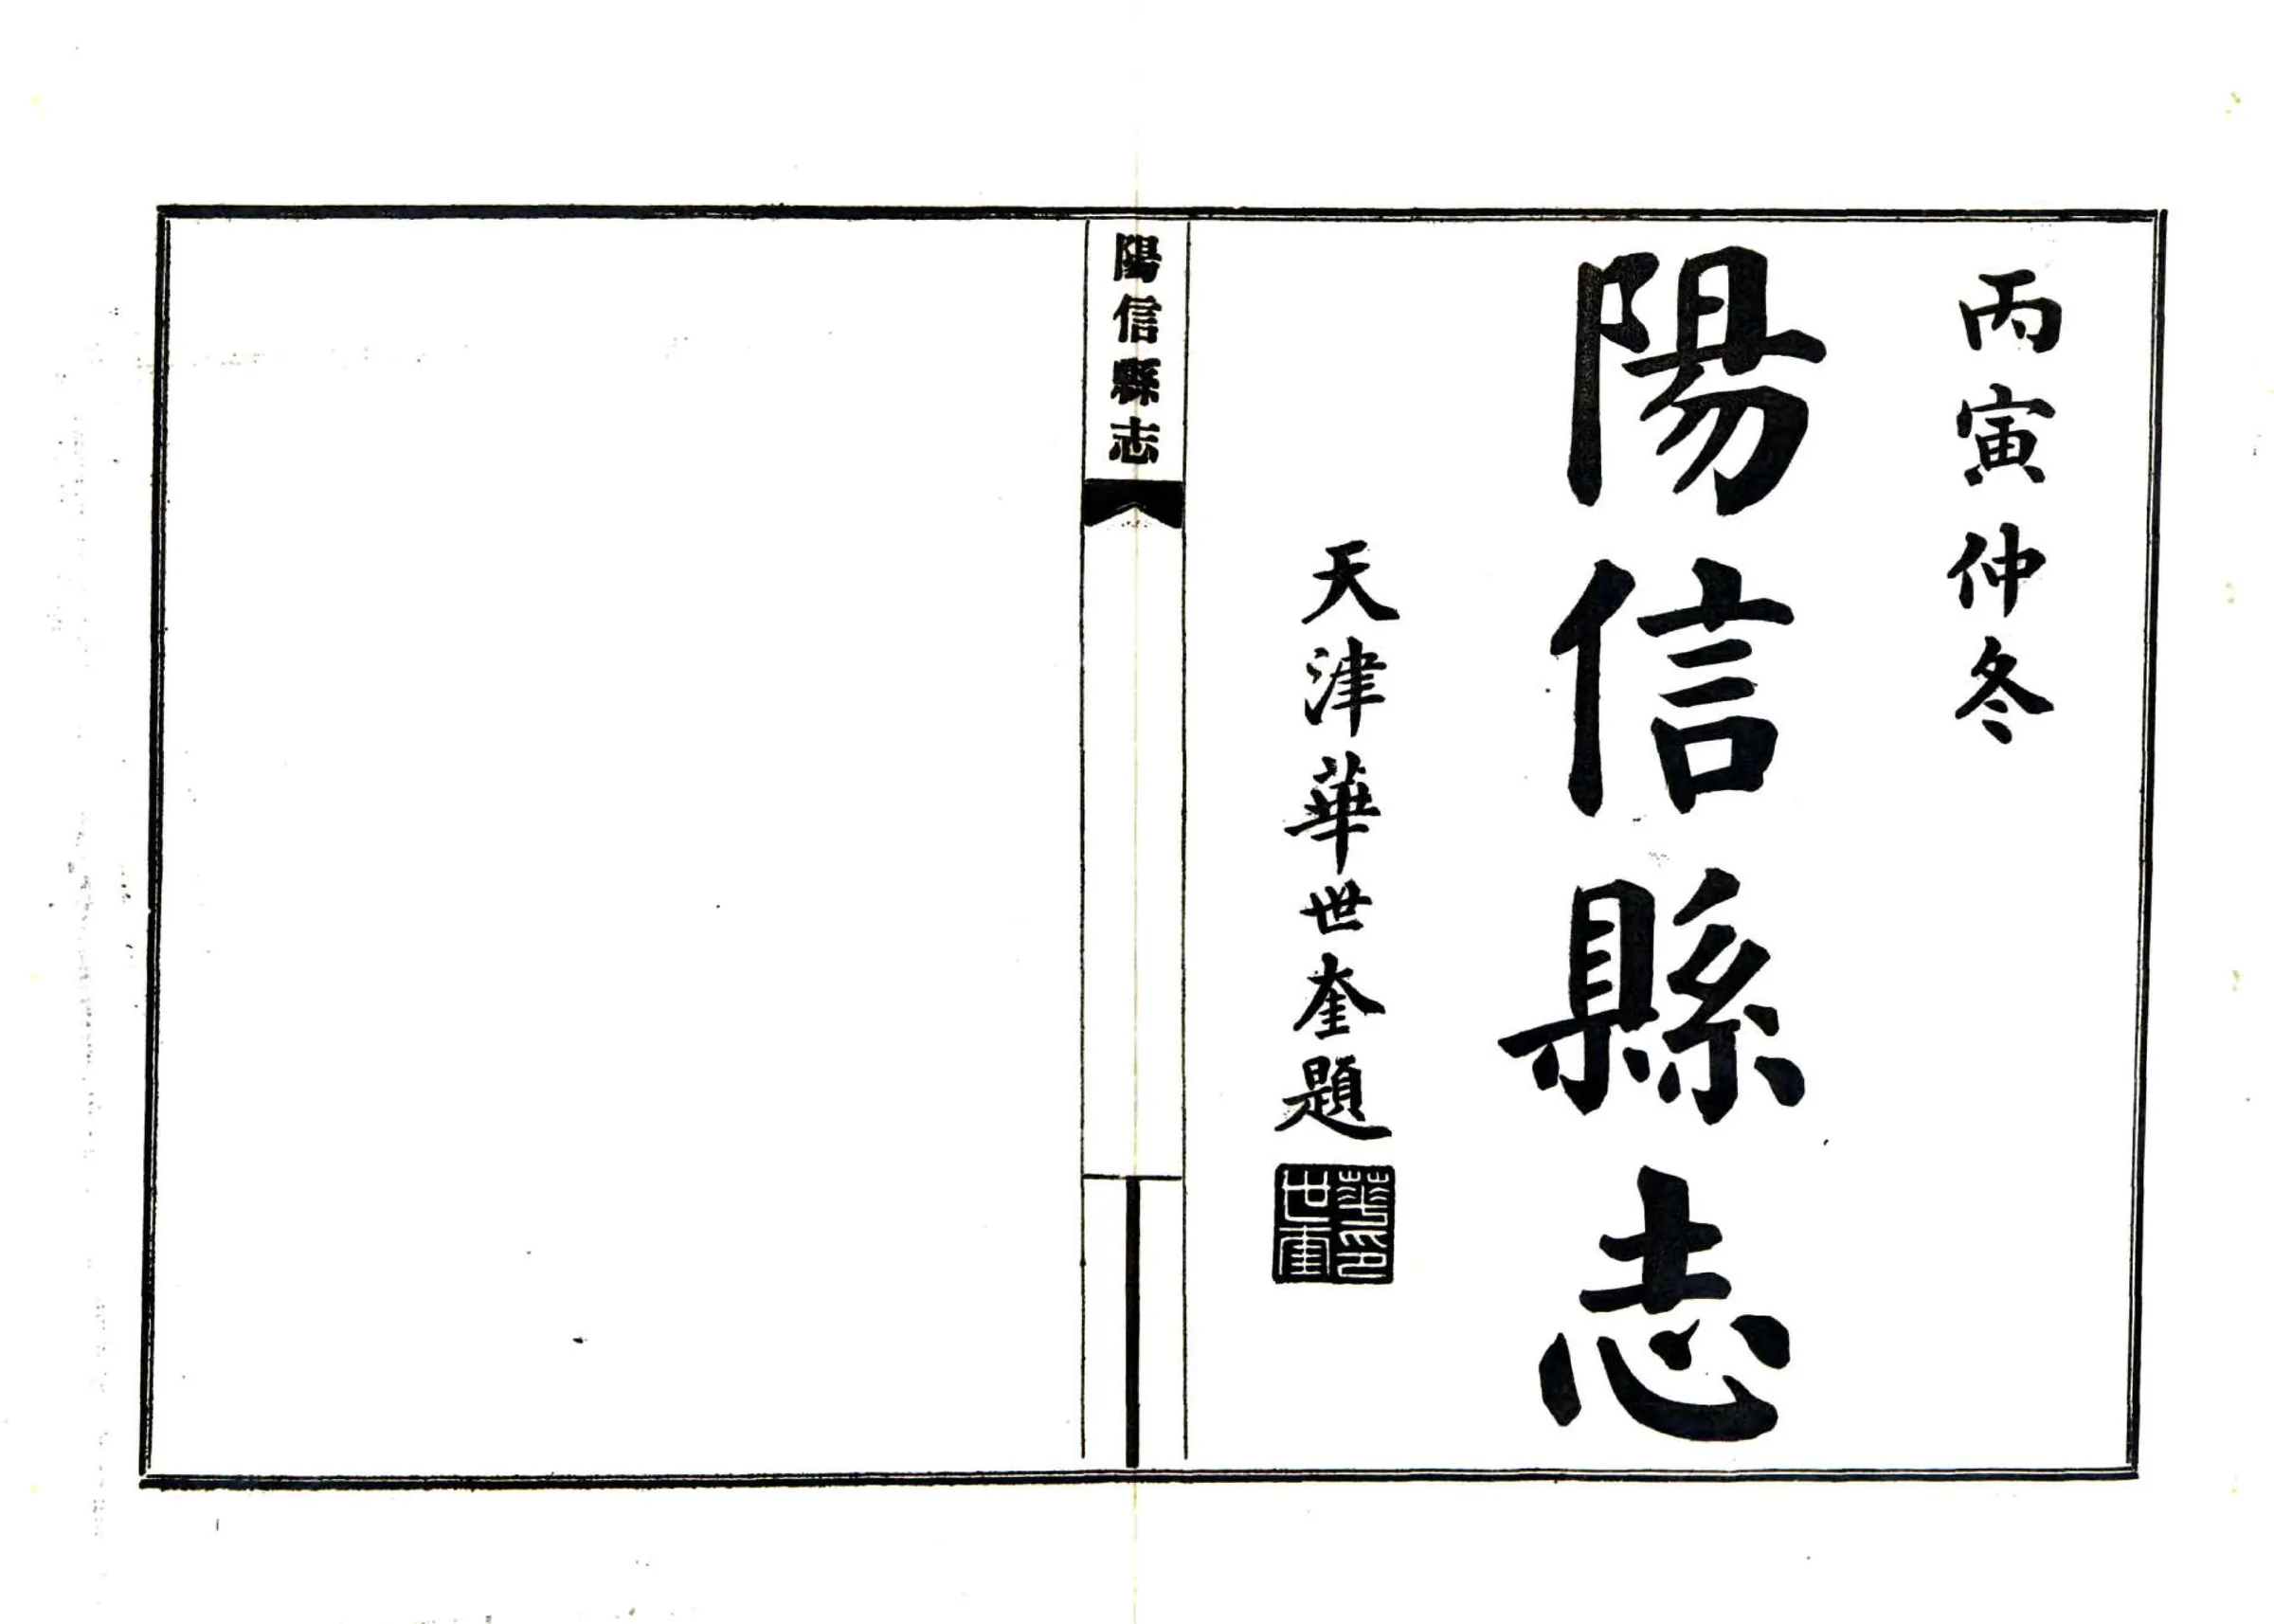 丙寅仲冬
陽信縣志
天津華世奎題
華印世奎
陽信縣志